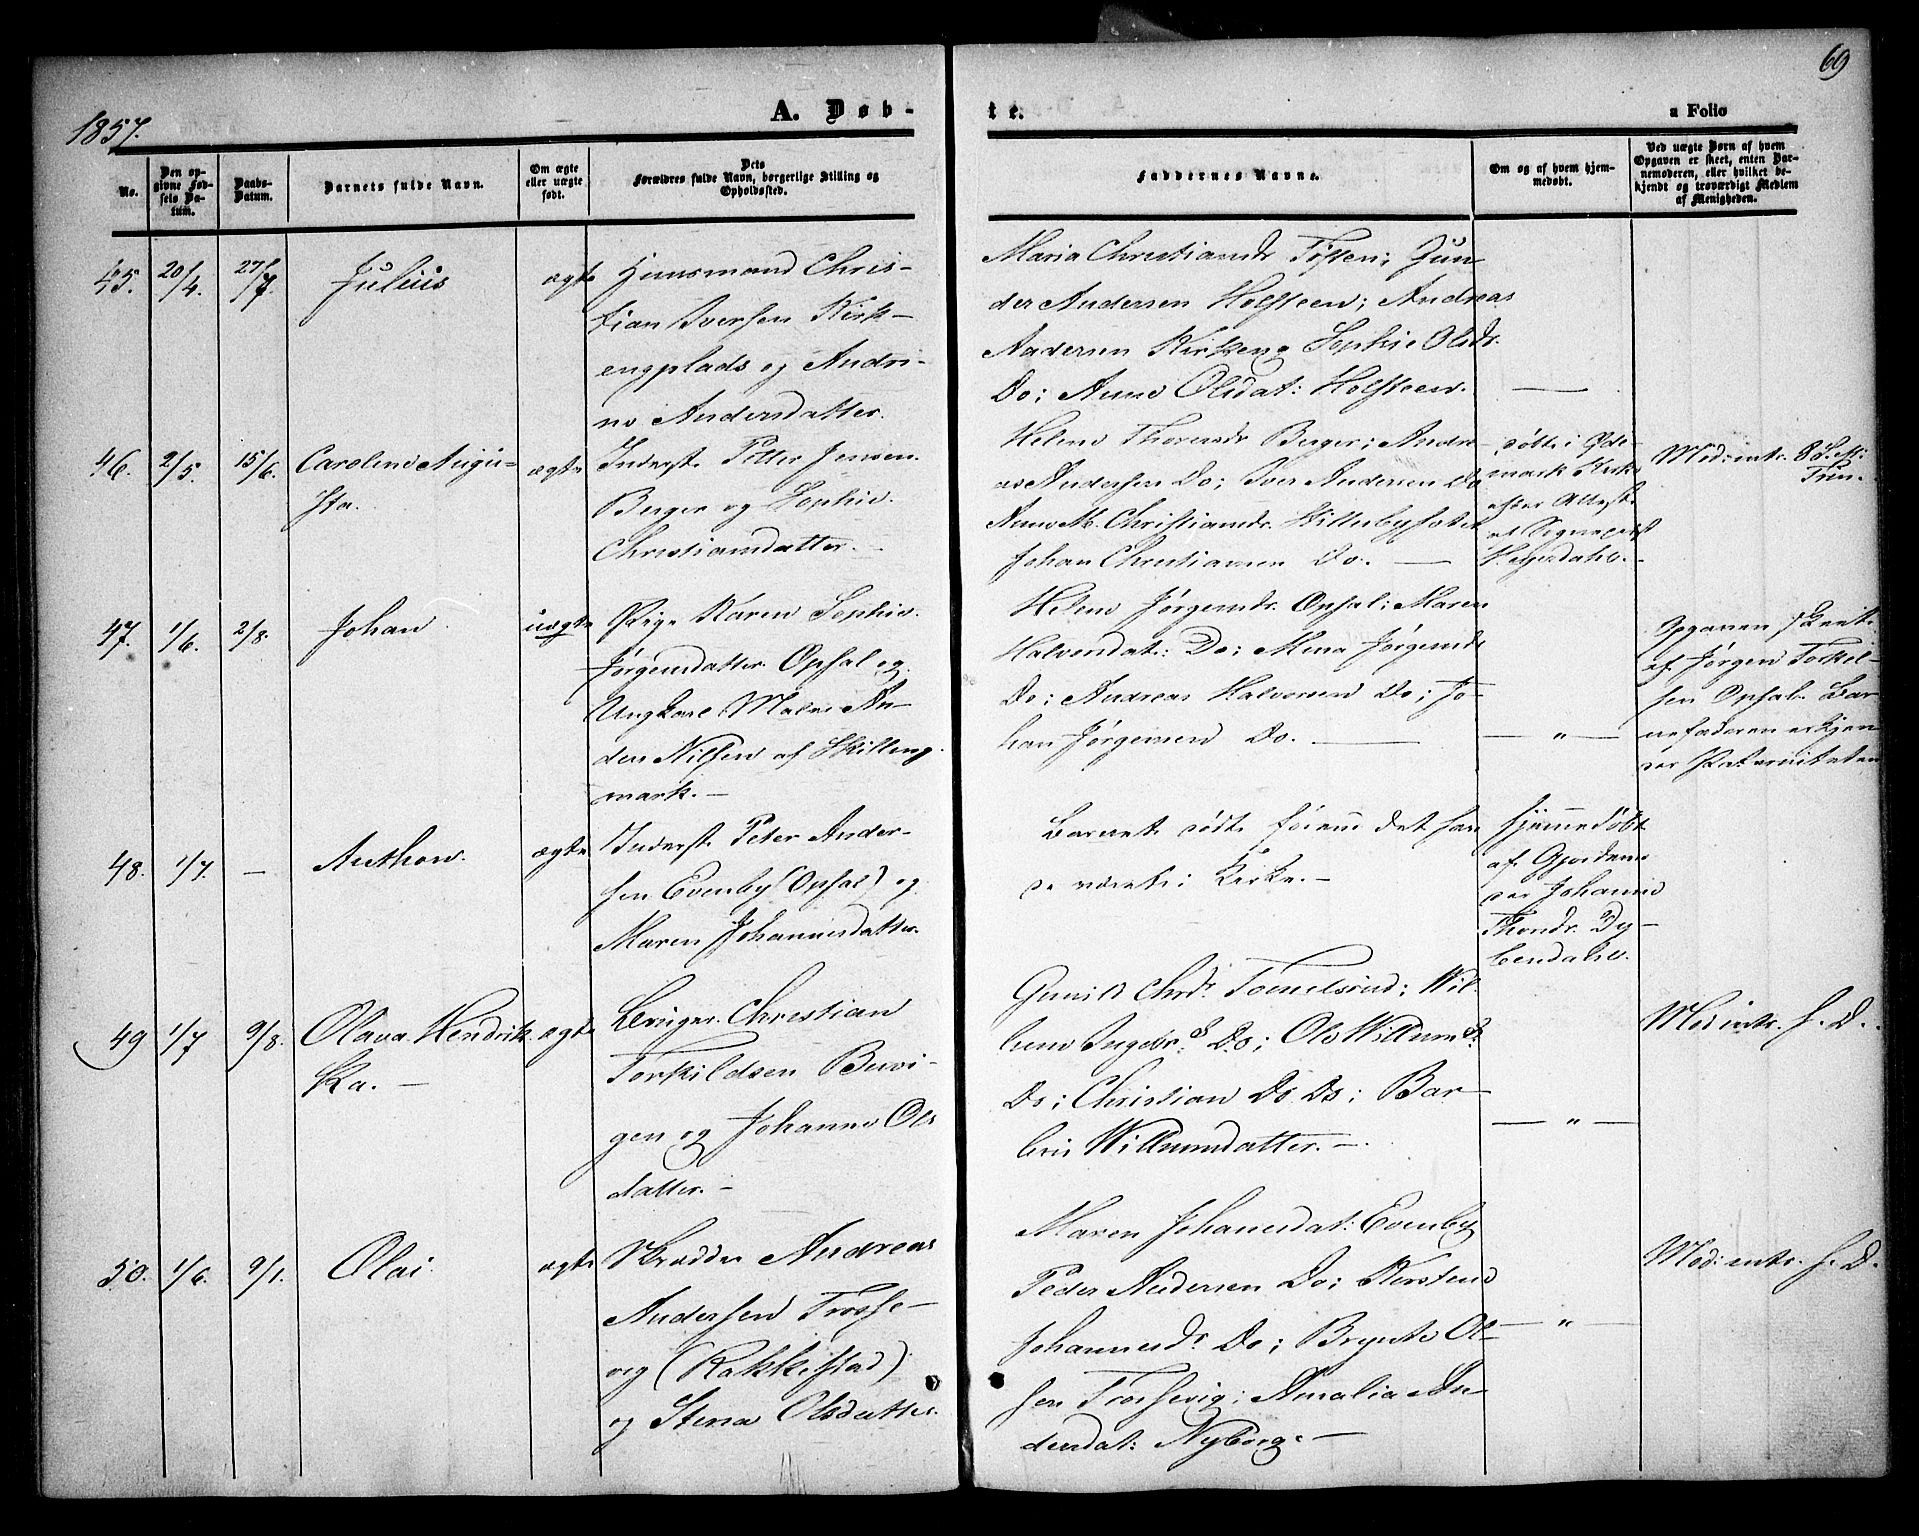 69
1857.
A. Døb-
te.
a Folio
No.
Den op-
givne Fød-
sels Da-
tum.
Daabs-
Datum.
Barnets fulde Navn.
Om ægte
eller uægte
født.
Dets
Forældres fulde Navn, borgerlige Stilling og
Opholdssted.
Faddernes Navne.
Om og af hvem hjem-
medøbt.
Ved uægte Børn af hvem
Opgaven er skeet, enten Bar-
nemoderen, eller hvilket be-
kjendt og troværdigt Medlem
af Menigheden.
45. 20/4. 27/7. Julius ægte Huusmand Chris-
tian Iversen Kirk-
engplads og Andri-
ne Andersdatter.
Maria Christiansdr Toften; Gun-
der Andersen Holsteen; Andreas
Andersen Kirkeng Sophie Olsdr.
Do; Anne Olsdat: Holsteen. —
46. 2/5. 15/6. Caroline Augu-
sta. ægte Inderst Petter Jensen
Berger og Sophie
Christiansdatter.
Helene Thoresdr Berger; Andre-
as Andersen Do; Iver Andersen Do
Anne M. Christiansdr. Hillebysæter
Johan Christiansen Do. —
døbt i Øde-
mark Kirke
efter Attest
af Sognepræst
Hejerdahl.
Mod: intr.
47. 1/6. 2/8. Johan. uægte Pige Karen Sophie
Jørgensdatter Opsal og
Ungkarl Maler An-
ders Nilsen af Skilleng-
mark.
Helene Jørgensdr. Opsal; Maren
Halvorsdat: Do; Mina Jørgensdr
Do; Andreas Halvorsen Do; Jo-
han Jørgensen Do. —
— " —
Opgaven skeet
af Jørgen Torkel-
sen Opsal. Bar-
nefaderen erkjen-
der Paterniteten
48. 1/7. — Anthon. ægte Inderst Peter Ander-
sen Evenby (Opsal) og
Maren Johannesdatter.
Barnet døde førend det kun-
de været i Kirke. —
hjemmedøbt
af Gjordemo-
der Johanne
Thorsdr. Dy-
bendahl.
49 1/7 9/8. Olava Hendrik-
ka. — ægte Bruger Christian
Torkildsen Buvi-
gen og Johanne Ols
datter. —
Gunild Chrdr. Tomelsrud; Wil-
helm Ingebr. Do; Ole Willumsd.
Do; Christian Do Do; Bar-
bra Willumsdatter. —
— " —
Mod intr. s. D.
50. 1/6. 9/1. Olai. ægte Skrædder Andreas
Andersen Trosse-
vig (Rakkestad)
og Stena Olsdatter.
Maren Johanesdat: Evenby
Peder Andersen Do; Kirstene
Johannesdr. Do; Brynte Ol-
sen Trossevig; Amalia An-
dersdat: Nyborg. —
— " —
Mod: intr. s. D.